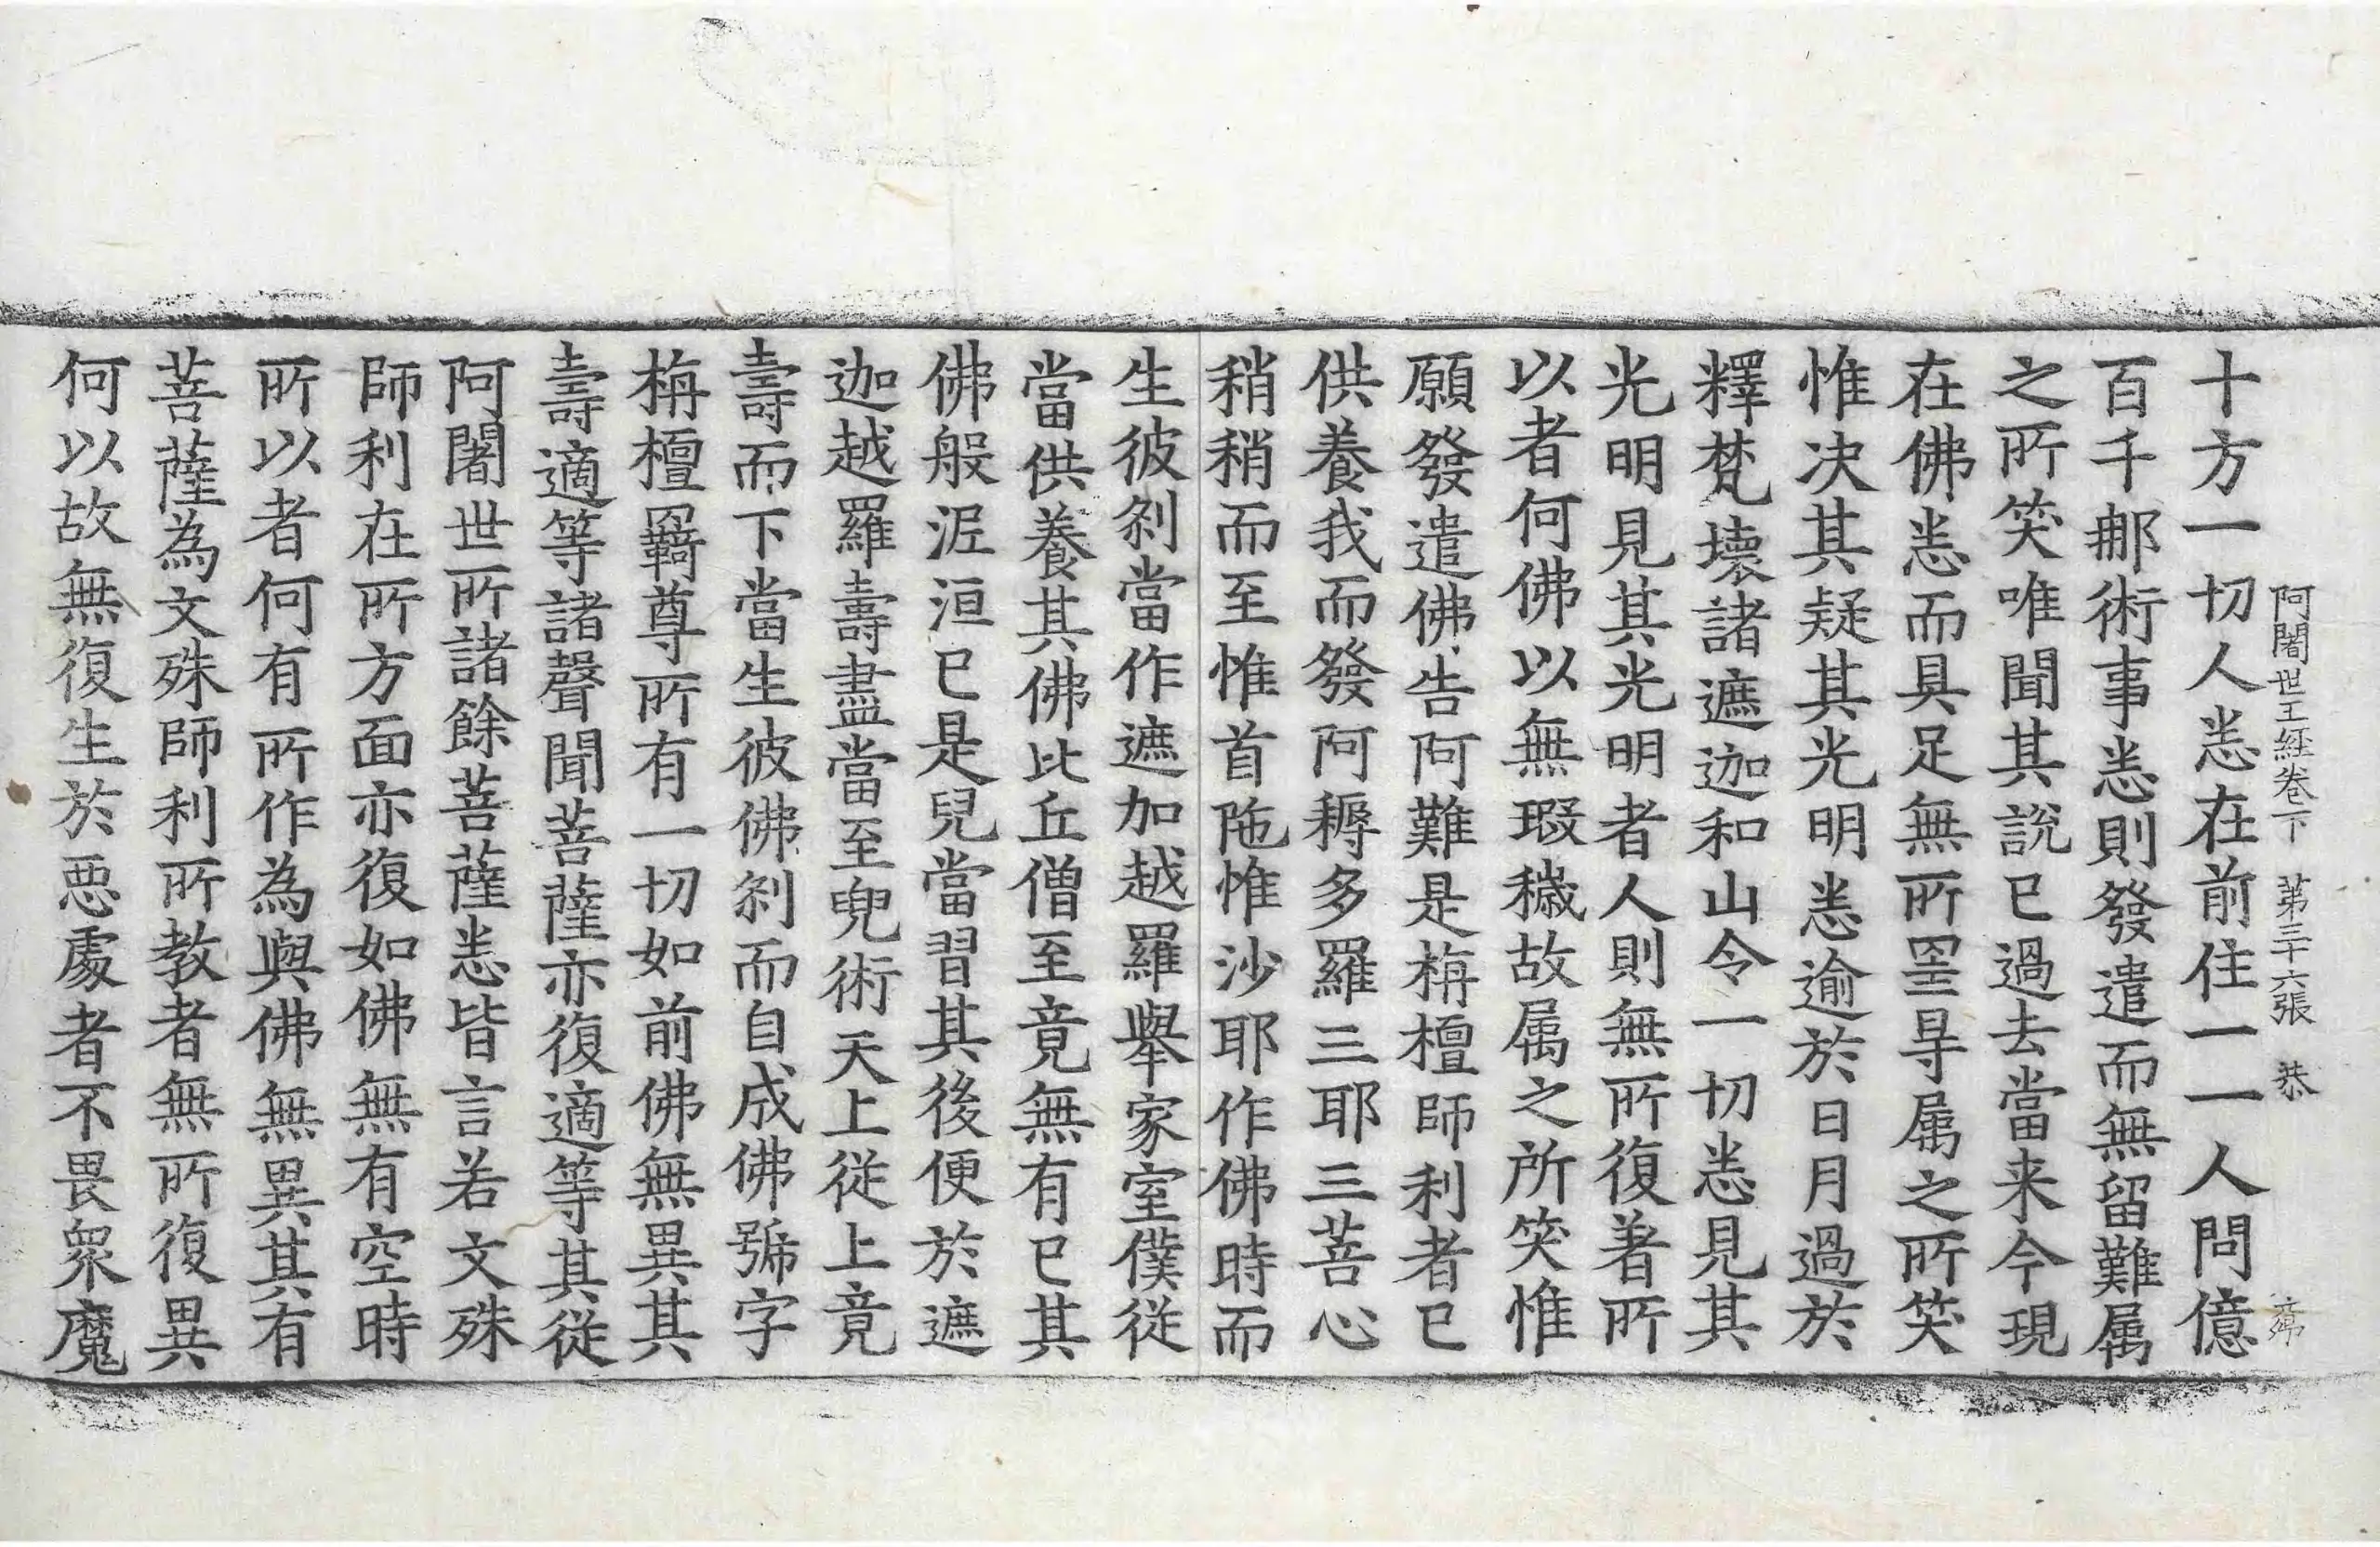 阿闍世王経卷下　第三十六張　恭
十方一切人恙在前住一一人問億
百千郍術事恙則發遣而無留難属
之所笑唯聞其說已過去當来今現
在佛恙而具足無所罣㝵属之所笑
惟决其疑其光明恙逾於日月過於
釋梵壞諸遮迦和山令一切恙見其
光明見其光明者人則無所復著所
以者何佛以無瑕穢故属之所笑惟
願發遣佛告阿難是栴檀師利者已
供養我而發阿耨多羅三耶三菩心
稍稍而至惟首陁惟沙耶作佛時而
生彼刹當作遮加越羅舉家室僕従
當供養其佛比丘僧至竟無有已其
佛般泥洹已是兒當習其後便於遮
迦越羅壽盡當至兜術天上従上竟
壽而下當生彼佛刹而自成佛號字
栴檀羇尊所有一切如前佛無異其
壽適等諸聲聞菩薩亦復適等其従
阿闍世所諸餘菩薩恙皆言若文殊
師利在所方面亦復如佛無有空時
所以者何有所作為與佛無異其有
菩薩為文殊師利所教者無所復異
何以故無復生於惡處者不畏衆魔